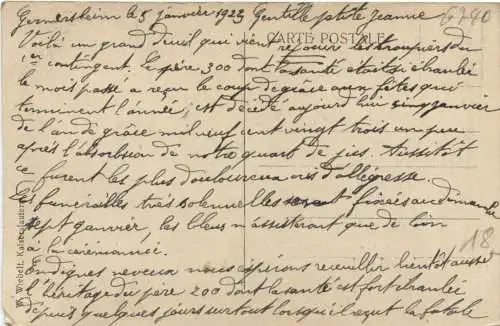 Germersheim le 5 janvier 1923 Gentille ptite Jeanne
6740
CARTE POSTALE
Voilà un grand deuil qui vient réjouir les troupiers du
1er contingent. Le père 300 dont la santé était si ébranlée
le mois passé a reçu le coup de grâce aux fêtes qui
terminent l'année; est décédé aujourd'hui cinq janvier
de l'an de grâce mil neuf cent vingt trois un peu
après l'absorbsion de notre quart de jus. Aussitôt
ce furent les plus douloureux cris d'allégresse.
Les funérailles très solennelles sont fixées au dimanche
sept janvier, les bleus n'assisteront que de loin
à la cérémonie.
18
en dignes neveux nous espérons recueillir bientôt aussi
l'héritage du père 200 dont la santé est fort ébranlée
depuis quelques jours surtout lorsqu'il a vu la fatale
Wiebelt, Kaiserslautern